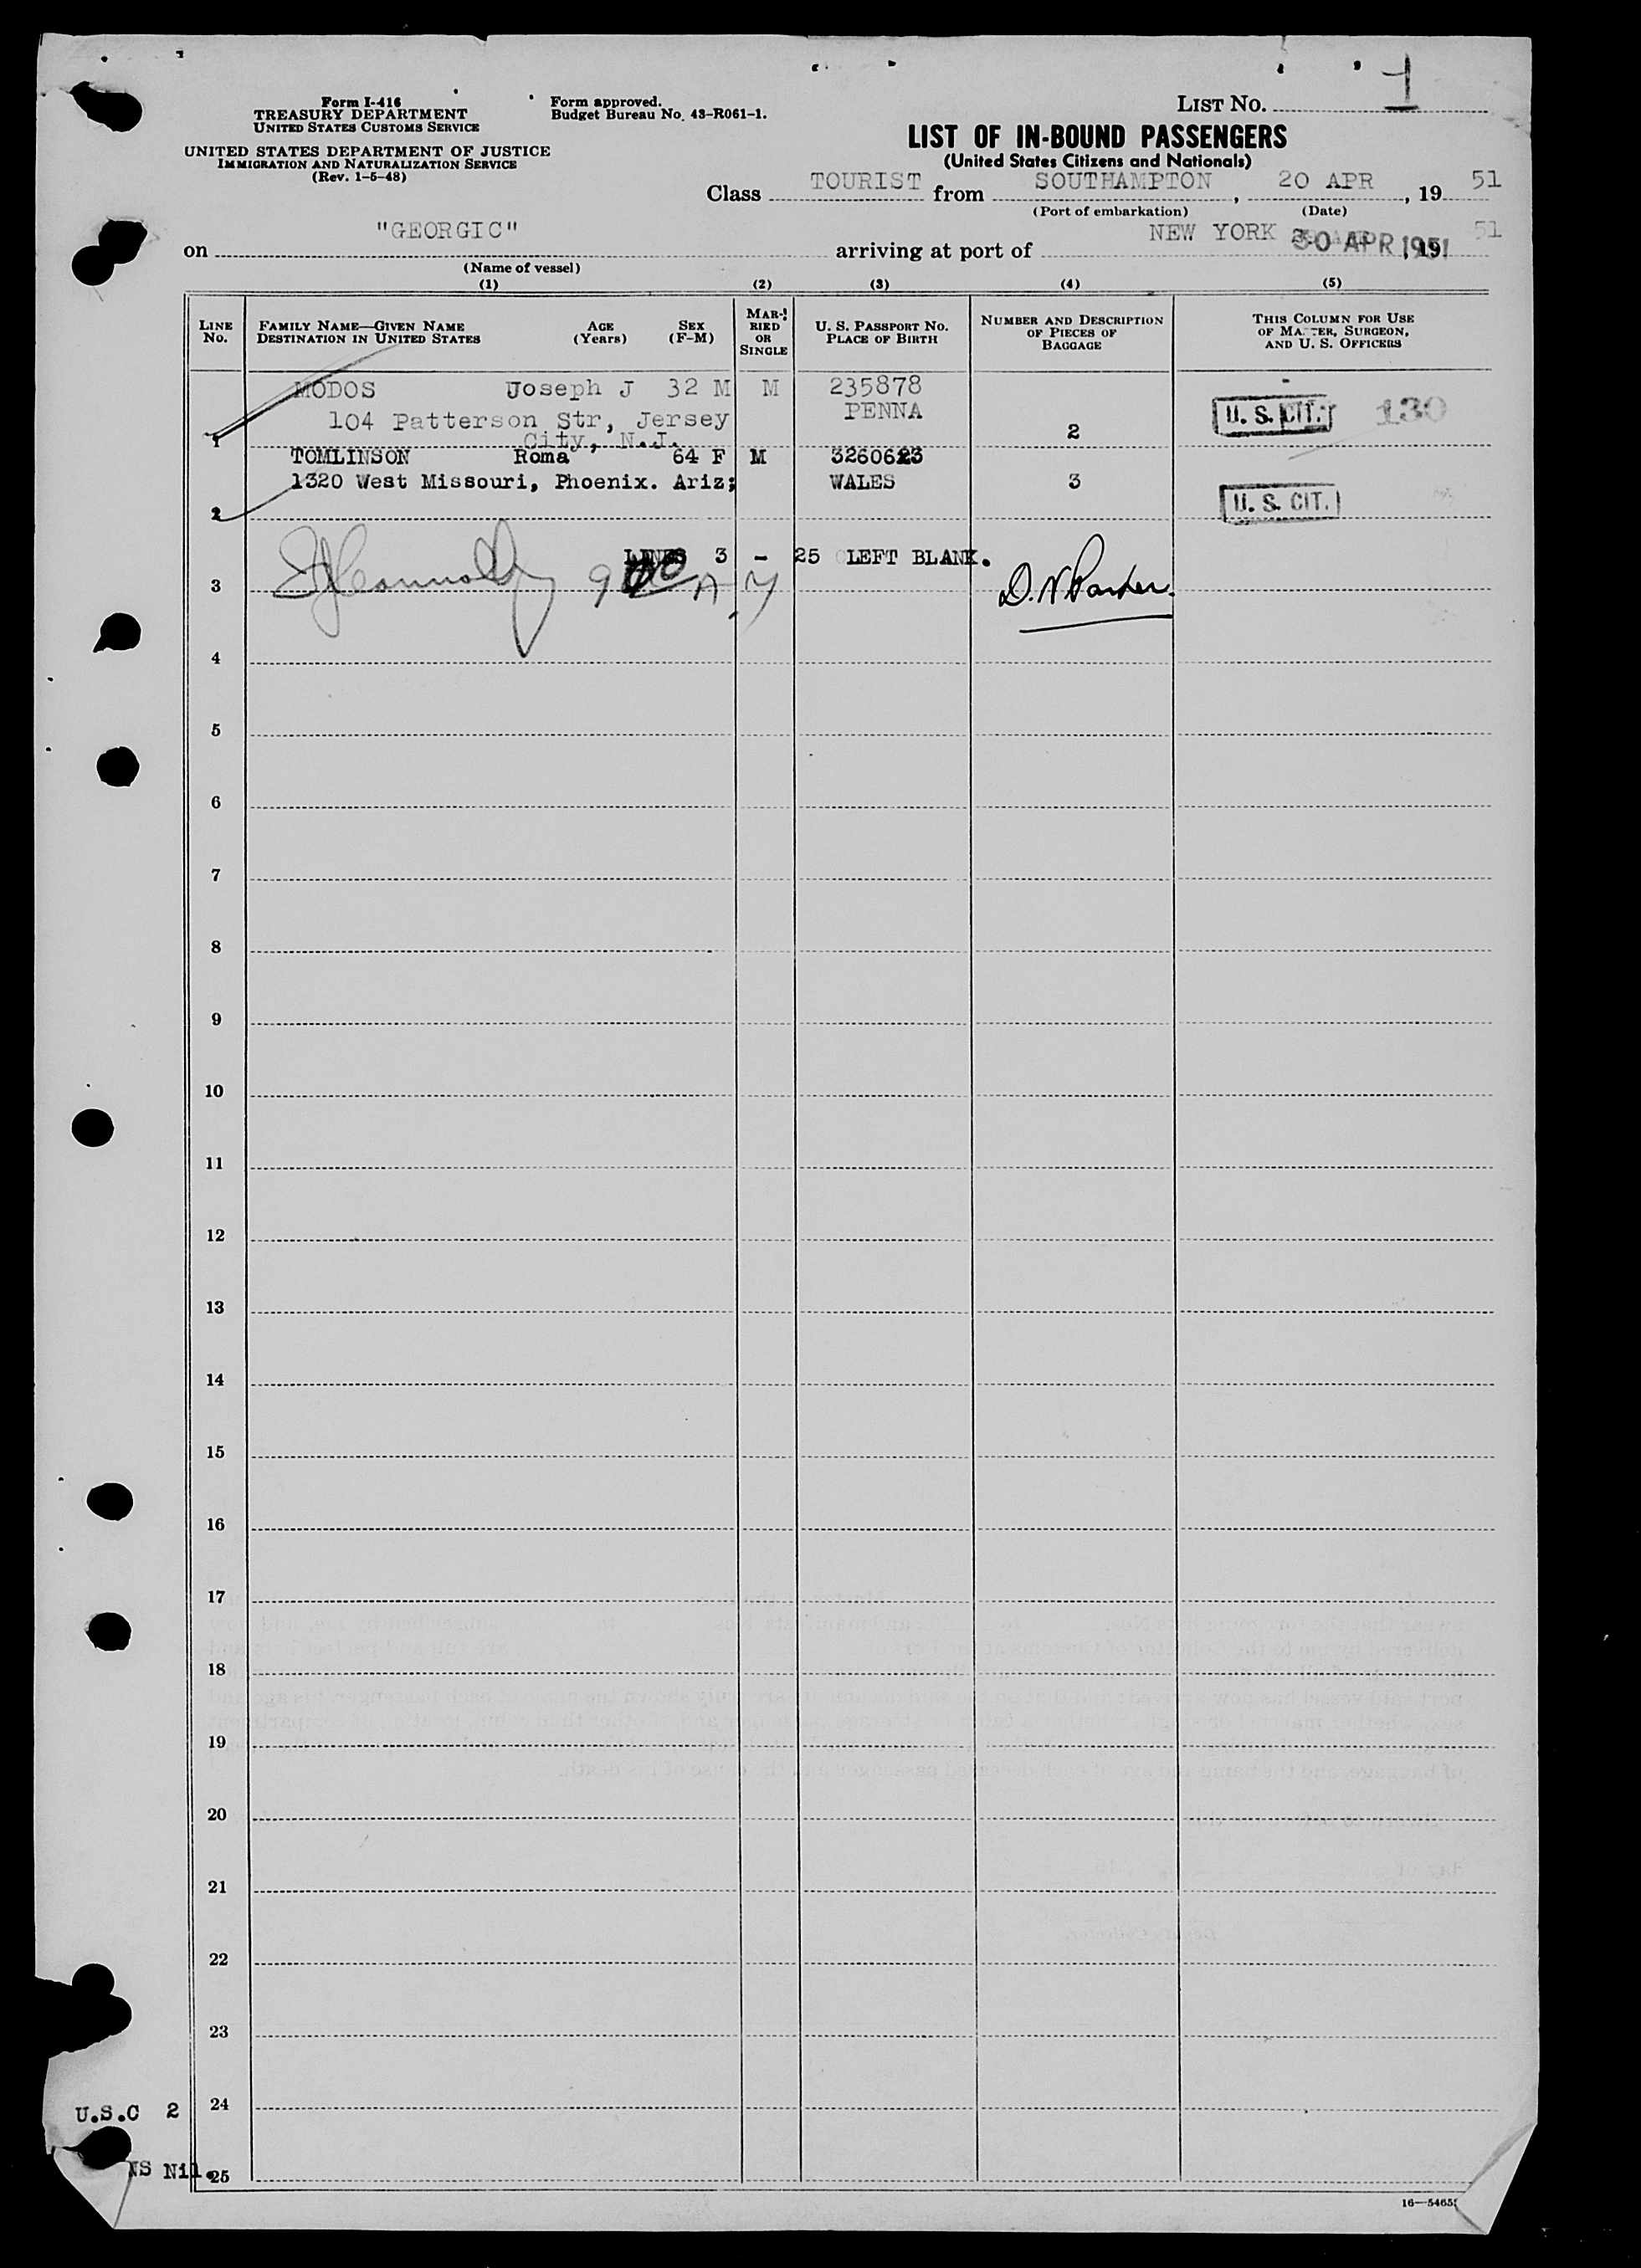 LIST No. 1
Form I-416
TREASURY DEPARTMENT
UNITED STATES CUSTOMS SERVICE
UNITED STATES DEPARTMENT OF JUSTICE
IMMIGRATION AND NATURALIZATION SERVICE
(Rev. 1-5-48)
Form approved.
Budget Bureau No. 43-R061-1.
LIST OF IN-BOUND PASSENGERS
(United States Citizens and Nationals)
Class TOURIST from SOUTHAMPTON, 20 APR, 19 51
(Port of embarkation) (Date)
on "GEORGIC" arriving at port of NEW YORK 30 APR 1951, 19 51
(Name of vessel)
(1) (2) (3) (4) (5)
LINE No. FAMILY NAME—GIVEN NAME DESTINATION IN UNITED STATES AGE (Years) SEX (F-M) MARRIED OR SINGLE U. S. PASSPORT No. PLACE OF BIRTH NUMBER AND DESCRIPTION OF PIECES OF BAGGAGE THIS COLUMN FOR USE OF MASTER, SURGEON, AND U. S. OFFICERS
MODOS Joseph J 32 M M 235878
104 Patterson Str, Jersey PENNA U. S. CIT. 130
1 City, N.J. 2
TOMLINSON Roma 64 F M 3260623
1320 West Missouri, Phoenix. Ariz; WALES 3
2 U. S. CIT.
LINES 3 - 25 LEFT BLANK.
3 D. N Parker.
4
5
6
7
8
9
10
11
12
13
14
15
16
17
18
19
20
21
22
23
24
U.S.C 2
NS Nil. 25